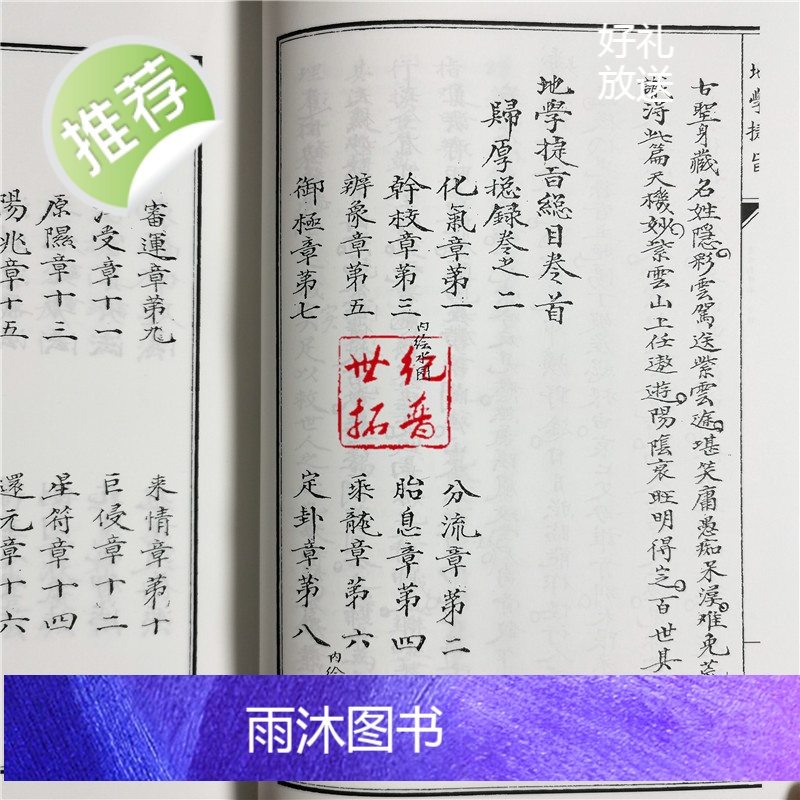 推荐
好礼
放送
地學捷旨
古聖身藏名姓隱彩雲駕送紫雲途堪笑庸愚痴呆漢难免
得此篇天機妙紫雲山上任遨遊陽陰衰旺明得定百世其
地學捷旨總目卷首
歸厚總錄卷之二
化氣章第一 分流章第二
幹枝章第三 内绘水图 胎息章第四
辨象章第五 乘龍章第六
御極章第七 定卦章第八 内绘
審運章第九 来情章第十
受章十一 巨侵章十二
原隰章十三 星符章十四
陽兆章十五 還元章十六
世纪
拓普
雨沐图书